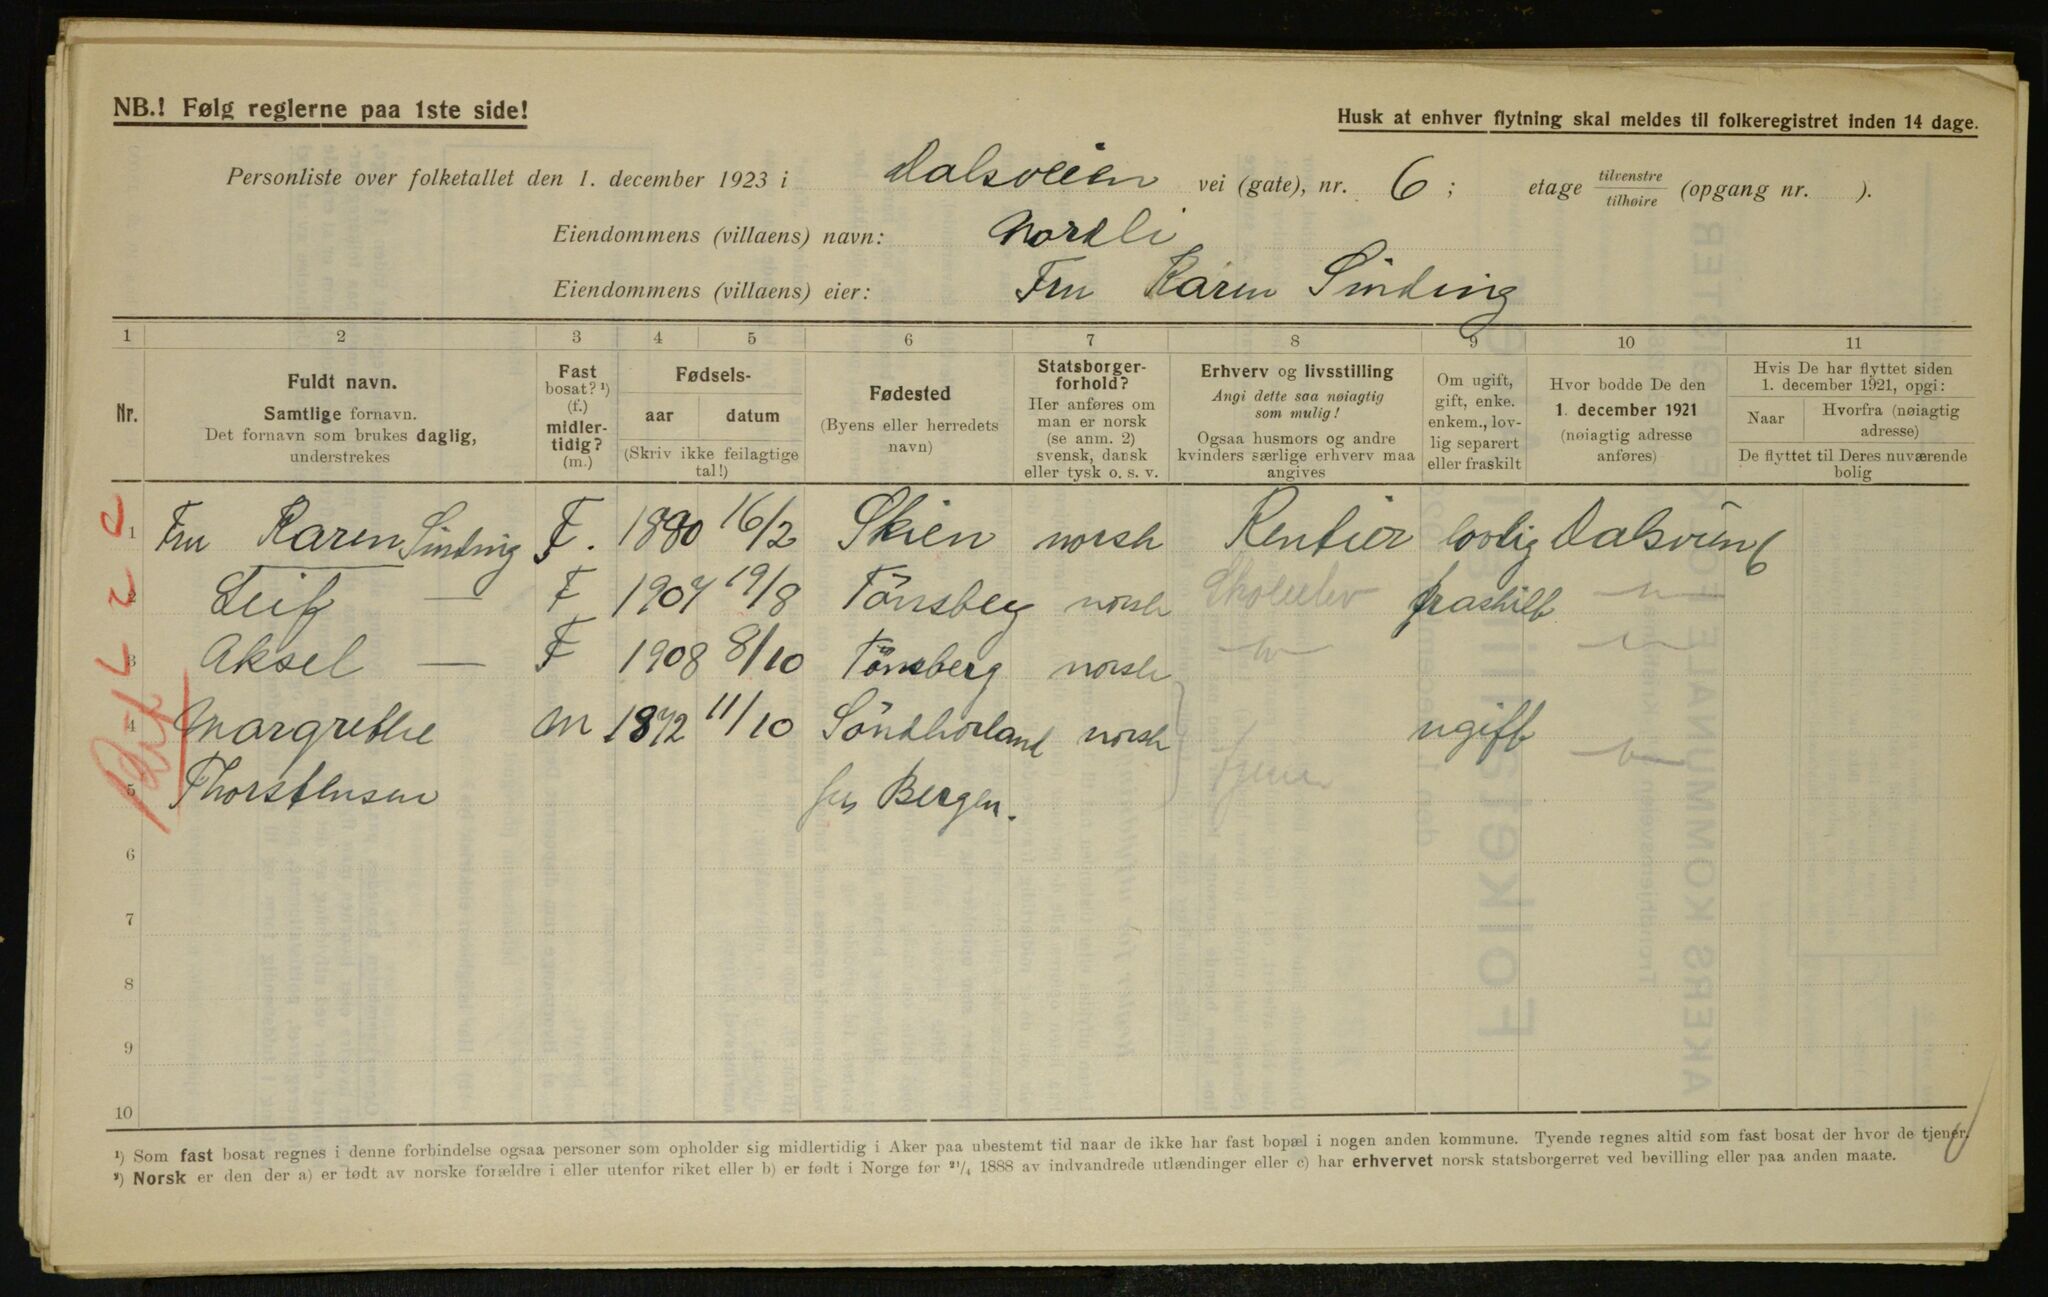 NB.! Følg reglerne paa 1ste side!
Husk at enhver flytning skal meldes til folkeregistret inden 14 dage.
Personliste over folketallet den 1. december 1923 i Dalsveien vei (gate), nr. 6; etage tilvenstre/tilhøire (opgang nr. ).
Eiendommens (villaens) navn: Nordli
Eiendommens (villaens) eier: Fru Karen Sinding
1 2 3 4 5 6 7 8 9 10 11
Nr.
Fuldt navn.
Samtlige fornavn.
Det fornavn som brukes daglig,
understrekes
Fast
bosat? ¹)
(f.)
midler-
tidig?
(m.)
Fødsels-
aar datum
(Skriv ikke feilagtige
tal!)
Fødested
(Byens eller herredets
navn)
Statsborger-
forhold?
Her anføres om
man er norsk
(se anm. 2)
svensk, dansk
eller tysk o. s. v.
Erhverv og livsstilling
Angi dette saa nøiagtig
som mulig!
Ogsaa husmors og andre
kvinders særlige erhverv maa
angives
Om ugift,
gift, enke.
enkem., lov-
lig separert
eller fraskilt
Hvor bodde De den
1. december 1921
(nøiagtig adresse
anføres)
Hvis De har flyttet siden
1. december 1921, opgi:
Naar Hvorfra (nøiagtig
adresse)
De flyttet til Deres nuværende
bolig
1 Fru Karen Sinding F. 1880 16/2 Skien norsk Rentier lovlig Dalsveien 6
2 Leif — F 1907 19/8 Tönsberg norsk Skoleelev fraskilt — " —
3 Aksel — F 1908 8/10 Tönsberg norsk — " — — " —
4 Margrethe m 1872 11/10 Söndhorland norsk ugift — " —
5 Thorstensen Bergen.
6
7
8
9
10
¹) Som fast bosat regnes i denne forbindelse ogsaa personer som opholder sig midlertidig i Aker paa ubestemt tid naar de ikke har fast bopæl i nogen anden kommune. Tyende regnes altid som fast bosat der hvor de tjener.
²) Norsk er den der a) er født av norske forældre i eller utenfor riket eller b) er født i Norge før ²¹/₄ 1888 av indvandrede utlændinger eller c) har erhvervet norsk statsborgerret ved bevilling eller paa anden maate.